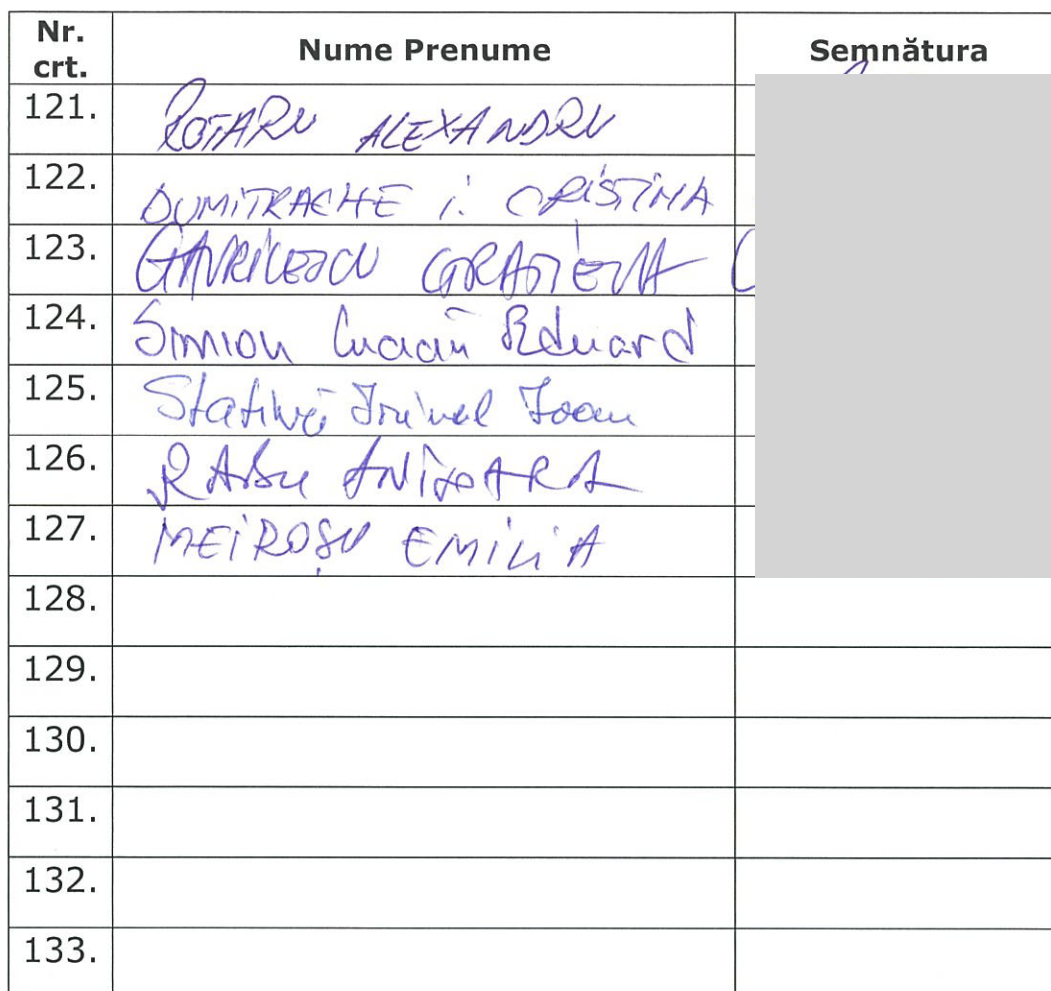 Nr. crt. Nume Prenume Semnătura
121. ROTARU ALEXANDRU
122. DUMITRACHE I. CRISTINA
123. GAVRILESCU GRATIELA
124. Simion Lucian Eduard
125. Stativă Irinel Ioan
126. RABU ANIȘOARA
127. MEIROȘU EMILIA
128.
129.
130.
131.
132.
133.